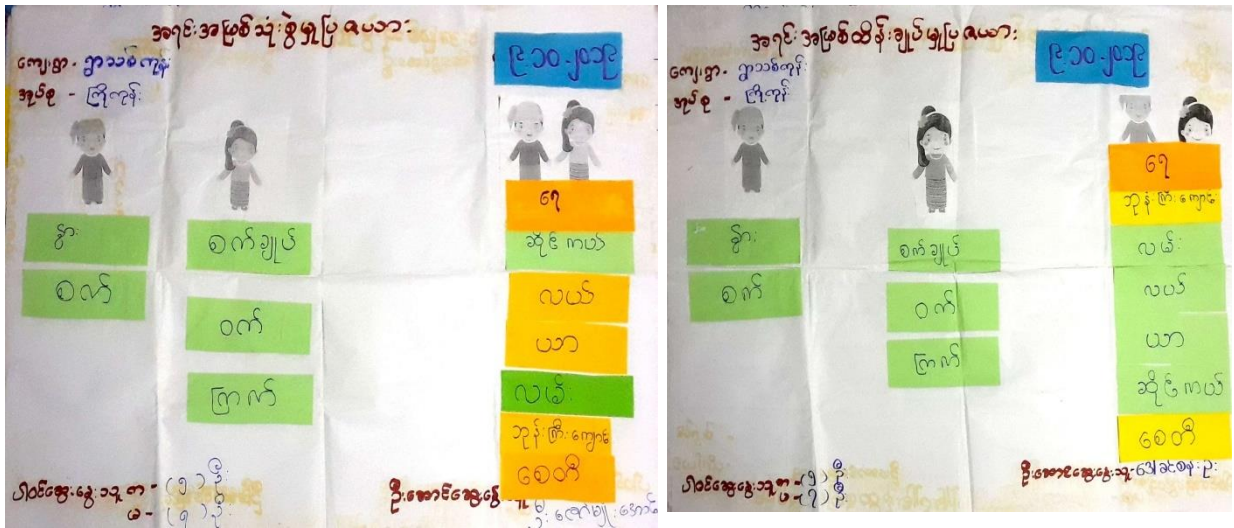 အရင်းအမြစ်သုံးစွဲမှုပြဇယား
ကျေးရွာ - ရွာသစ်ကုန်း
အုပ်စု - ကြို့ကုန်း
၉.၁၀.၂၀၁၉
နွား
စက်
စက်ချုပ်
ဝက်
ကြက်
ရေ
ဆိုင်ကယ်
လယ်
ယာ
လမ်း
ဘုန်းကြီးကျောင်း
စေတီ
ပါဝင်ဆွေးနွေးသူ ကျား - (၅) ဦး
မ - (၇) ဦး
အရင်းအမြစ်ထိန်းချုပ်မှုပြဇယား
ကျေးရွာ - ရွာသစ်ကုန်း
အုပ်စု - ကြို့ကုန်း
၉.၁၀.၂၀၁၉
နွား
စက်
စက်ချုပ်
ဝက်
ကြက်
ရေ
ဘုန်းကြီးကျောင်း
လမ်း
လယ်
ယာ
ဆိုင်ကယ်
စေတီ
ပါဝင်ဆွေးနွေးသူ ကျား - (၅) ဦး
မ - (၇) ဦး
ဦးဆောင်ဆွေးနွေးသူ - ဒေါ်ခင်စန်းဦး